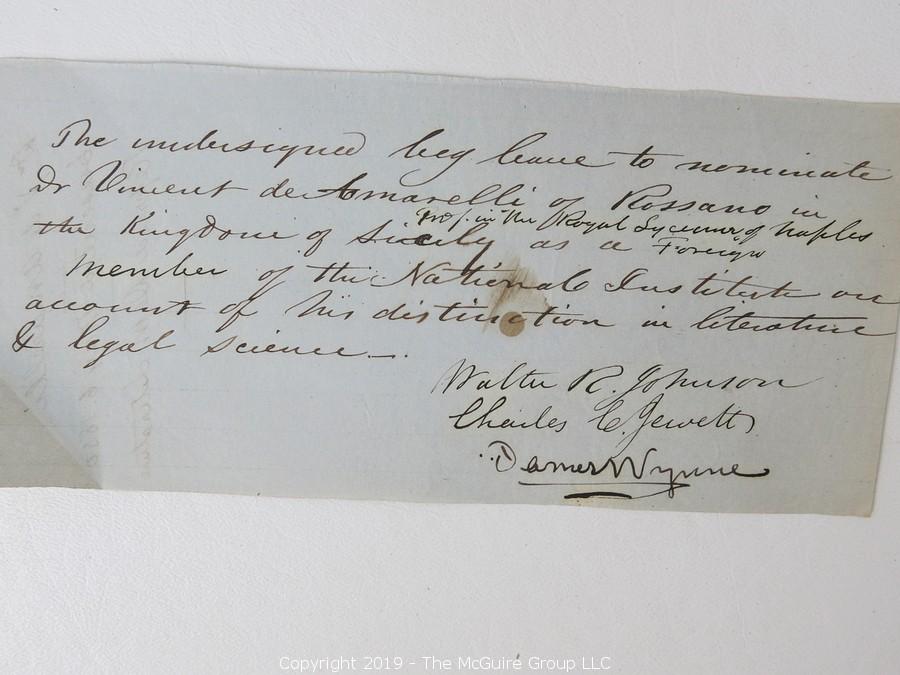 The undersigned beg leave to nominate
Dr Vincent de Amarelli of Rossano in
Prof. in the Royal Lyceum of Naples
the Kingdom of Sicily as a Foreign
Member of the National Institute on
account of his distinction in literature
& legal science—.
Walter R. Johnson
Charles C. Jewett
Damer Wynne
Copyright 2019 - The McGuire Group LLC